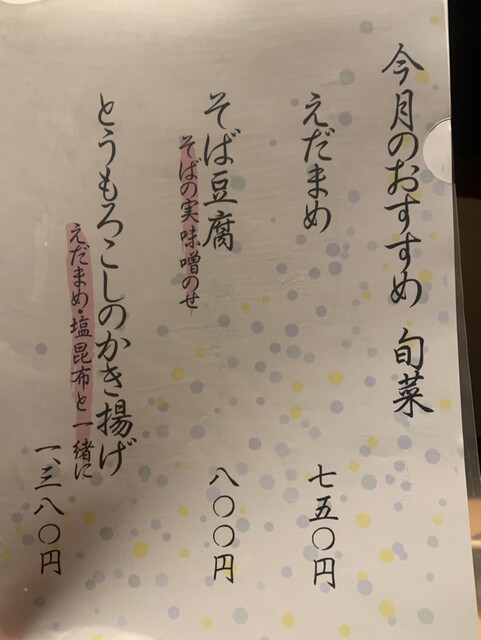 今月のおすすめ 旬菜
えだまめ 七五〇円
そば豆腐 八〇〇円
そばの実味噌のせ
とうもろこしのかき揚げ
えだまめ・塩昆布と一緒に
一、三八〇円